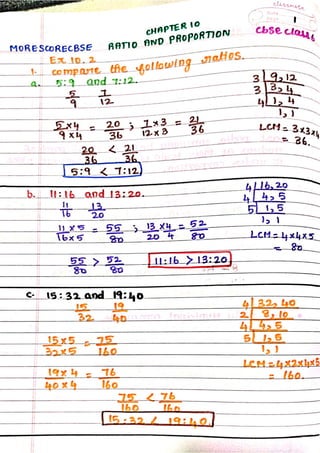 classmate
1
CHAPTER 10
cbse class 6
MORESCORECBSE RATIO AND PROPORTION
Ex 10.2
1. compare the following ratios.
a. 5:9 and 7:12.
5/9 7/12
5×4/9×4 = 20/36 ; 7×3/12×3 = 21/36
20/36 < 21/36
5:9 < 7:12
3 | 9,12
3 | 3,4
4 | 1,4
1,1
LCM = 3×3×4
= 36.
b. 11:16 and 13:20.
11/16 13/20
11×5/16×5 = 55/80 ; 13×4/20 4 = 52/80
55/80 > 52/80 11:16 > 13:20
4 | 16,20
4 | 4,5
5 | 1,5
1,1
LCM = 4×4×5
= 80
c. 15:32 and 19:40
15/32 19/40
15×5/32×5 = 75/160
19×4/40×4 = 76/160
75/160 < 76/160
15:32 < 19:40
4 | 32,40
2 | 8,10
4 | 4,5
5 | 1,5
1,1
LCM = 4×2×4×5
= 160.